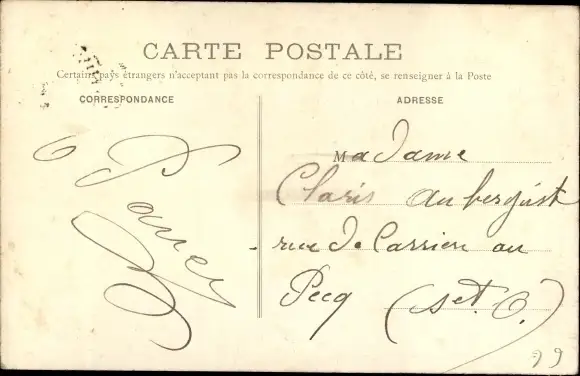 CARTE POSTALE
Certains pays étrangers n'acceptant pas la correspondance de ce côté, se renseigner à la Poste
CORRESPONDANCE
ADRESSE
Madame
Claris Aubergist
rue de Carrieu au
Pecq (Set. O.)
99